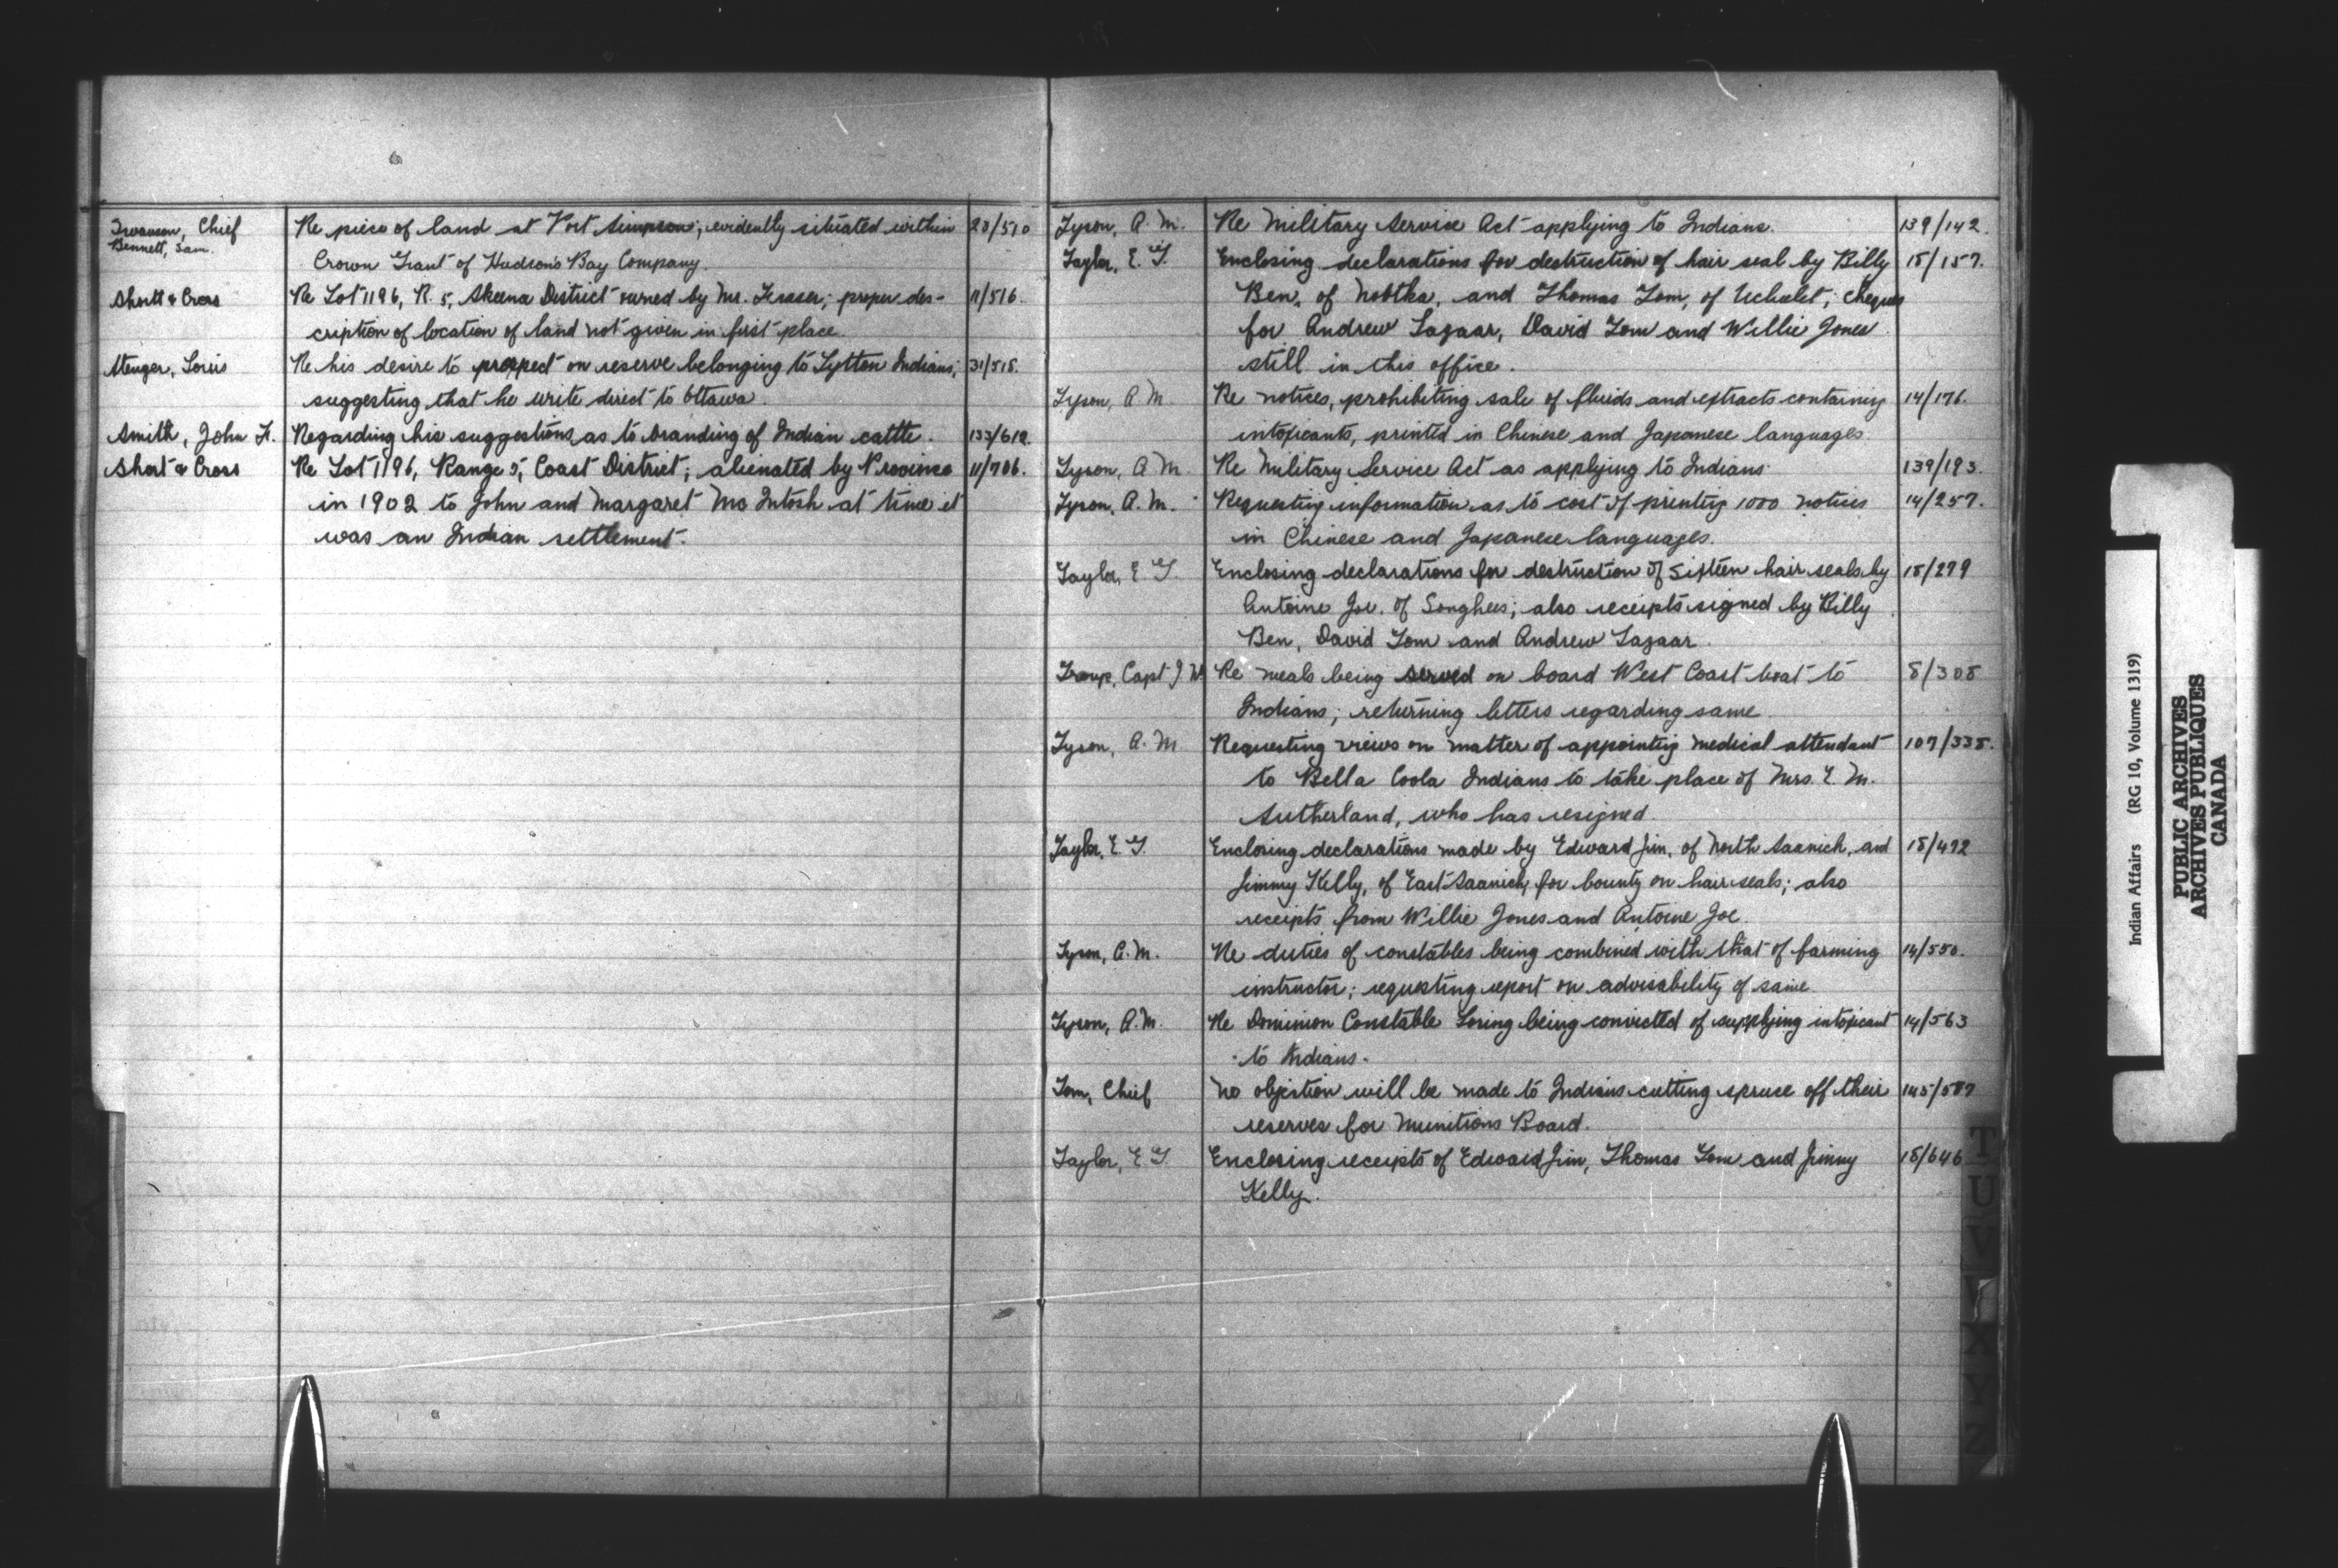 Swanson, Chief Re piece of land at Port Simpson; evidently situated within 23/510
Bennett, Sam.
Crown Grant of Hudson's Bay Company.
Shortt & Cross Re Lot 1196, R. 5, Skeena District owned by Mr. Fraser; proper des- 11/516.
cription of location of land not given in first place.
Stenger, Louis Re his desire to prospect on reserve belonging to Lytton Indians; 31/518.
suggesting that he write direct to Ottawa.
Smith, John F. Regarding his suggestions as to branding of Indian cattle. 133/619.
Short & Cross Re Lot 1196, Range 5, Coast District; alienated by Province 11/706.
in 1902 to John and Margaret McIntosh at time it
was an Indian settlement.
Tyson, A. M. Re Military Service Act applying to Indians. 139/142.
Taylor, E. G. Enclosing declarations for destruction of hair seal by Billy 18/157.
Ben, of Nootka, and Thomas Tom, of Uchulet; cheques
for Andrew Lazaar, David Tom and Willie Jones
still in this office.
Tyson, A M Re notices, prohibiting sale of fluids and extracts containing 14/176.
intoxicants, printed in Chinese and Japanese languages.
Tyson, A M. Re Military Service Act as applying to Indians 139/193.
Tyson, A. M. Requesting information as to cost of printing 1000 notices 14/257.
in Chinese and Japanese languages.
Taylor, E G Enclosing declarations for destruction of sixteen hair seals by 18/279
Antoine Joe, of Songhees; also receipts signed by Billy
Ben, David Tom and Andrew Lazaar.
Troup, Capt J W Re meals being served on board West Coast boat to 8/308
Indians; returning letters regarding same.
Tyson, A. M Requesting views on matter of appointing medical attendant 107/338.
to Bella Coola Indians to take place of Mrs. E. M.
Sutherland, who has resigned.
Taylor, E. G. Enclosing declarations made by Edward Jim, of North Saanich, and 18/492
Jimmy Kelly, of East Saanich, for bounty on hair seals; also
receipts from Willie Jones and Antoine Joe.
Tyson, A. M. Re duties of constables being combined with that of farming 14/550.
instructor; requesting report on advisability of same
Tyson, A. M. Re Dominion Constable Loring being convicted of supplying intoxicant 14/563
to Indians.
Tom, Chief No objection will be made to Indians cutting spruce off their 145/587
reserves for Munitions Board.
Taylor, E G. Enclosing receipts of Edward Jim, Thomas Tom and Jimmy 18/646
Kelly.
T
U
V
X
Y
Z
Indian Affairs (RG 10, Volume 1319)
PUBLIC ARCHIVES
ARCHIVES PUBLIQUES
CANADA